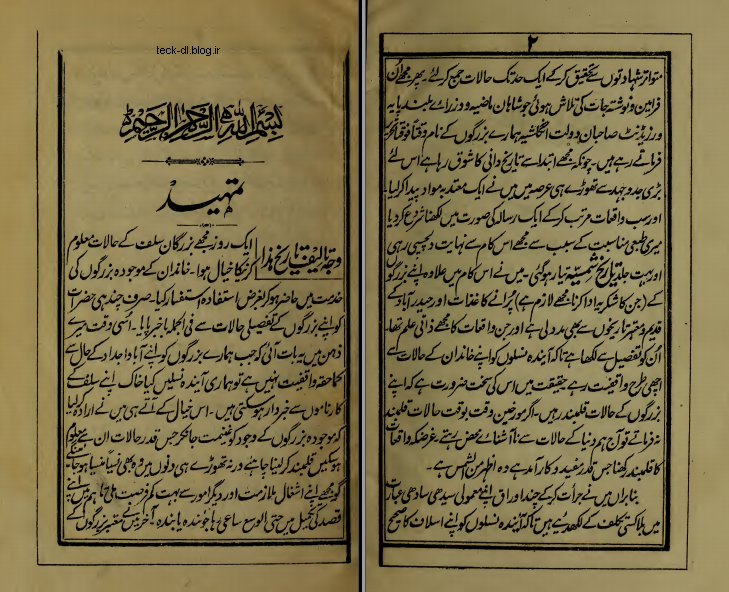 teck-dl.blog.ir
بسم اللہ الرحمن الرحیم
تمہید
وجہ تالیف تاریخ ہذا
ایک روز مجھے بزرگان سلف کے حالات معلوم
کرنیکا خیال ہوا۔ خاندان کے موجودہ بزرگوں کی
خدمت میں حاضر ہو کر بغرض استفادہ استفسار کیا۔ صرف چند ہی حضرات
کو اپنے بزرگوں کے تفصیلی حالات سے فی الجملہ باخبر پایا۔ اُسی وقت میرے
ذہن میں یہ بات آئی کہ جب ہمارے بزرگوں کو اپنے آبا و اجداد کے حال سے
کماحقہ واقفیت نہیں ہے تو ہماری آیندہ نسلیں کیا خاک اپنے سلف کے
کارناموں سے خبردار ہو سکتی ہیں۔ اس خیال کے آتے ہی میں نے ارادہ کر لیا
کہ موجودہ بزرگوں کے وجود کو غنیمت جانکر جس قدر حالات ان سے معلوم
ہوسکیں قلمبند کر لینا چاہئے ورنہ تھوڑے ہی دنوں میں وہ بھی نسیاً منسیا ہو جائینگے
گو مجھے اپنے اشغال ملازمت اور دیگر امور سے بہت کم فرصت ملی تاہم میں اپنے
قصد کی تکمیل میں حتی الوسع ساعی رہا جوئندہ یابندہ آخر میں نے معتبر بزرگوں کے
۲
متواتر شہادتوں سے تحقیق کر کے ایک حد تک حالات جمع کر لئے۔ پھر مجھے اُن
فرامین و نوشتہ جات کی تلاش ہوئی جو شاہان ماضیہ و وزرائے بلند پایہ
و رزیڈنٹ صاحبان دولت انگلشیہ ہمارے بزرگوں کے نام وقتاً فوقتاً تحریر
فرماتے رہے ہیں۔ چونکہ مجھے ابتدا سے تاریخ دانی کا شوق رہا ہے اس لئے
بڑی جدوجہد سے تھوڑے ہی عرصہ میں میں نے ایک معتدبہ مواد پیدا کر لیا۔
اور سب واقعات مرتب کر کے ایک رسالہ کی صورت میں لکھنا شروع کر دیا
میری طبعی مناسبت کے سبب سے مجھے اس کام سے نہایت دلچسپی رہی
اور بہت جلد تاریخ شمسیہ تیار ہو گئی۔ میں نے اس کام میں علاوہ اپنے بزرگوں
کے (جن کا شکریہ ادا کرنا مجھے لازم ہے) پُرانے کاغذات اور حیدرآباد کے
قدیم و معتبر تاریخوں سے بھی مدد لی ہے اور جن واقعات کا مجھے ذاتی علم تھا۔
اُن کو تفصیل سے لکھا ہے تاکہ آیندہ نسلوں کو اپنے خاندان کے حالات سے
اچھی طرح واقفیت رہے۔ حقیقت میں اس کی سخت ضرورت ہے کہ اپنے
بزرگوں کے حالات قلمبند رہیں۔ اگر مورخین وقت بوقت حالات قلمبند
نہ فرماتے تو آج ہم دنیا کے حالات سے نا آشنائے محض رہتے غرضکہ واقعات
کا قلمبند رکھنا جس قدر مفید و کارآمد ہے وہ اظہر من الشمس ہے۔
بنا براں میں نے جرأت کر کے چند اوراق اپنے معمولی سیدھی سادھی عبارت
میں بلا کسی تکلف کے لکھدیے ہیں تاکہ آیندہ نسلوں کو اپنے اسلاف کا صحیح